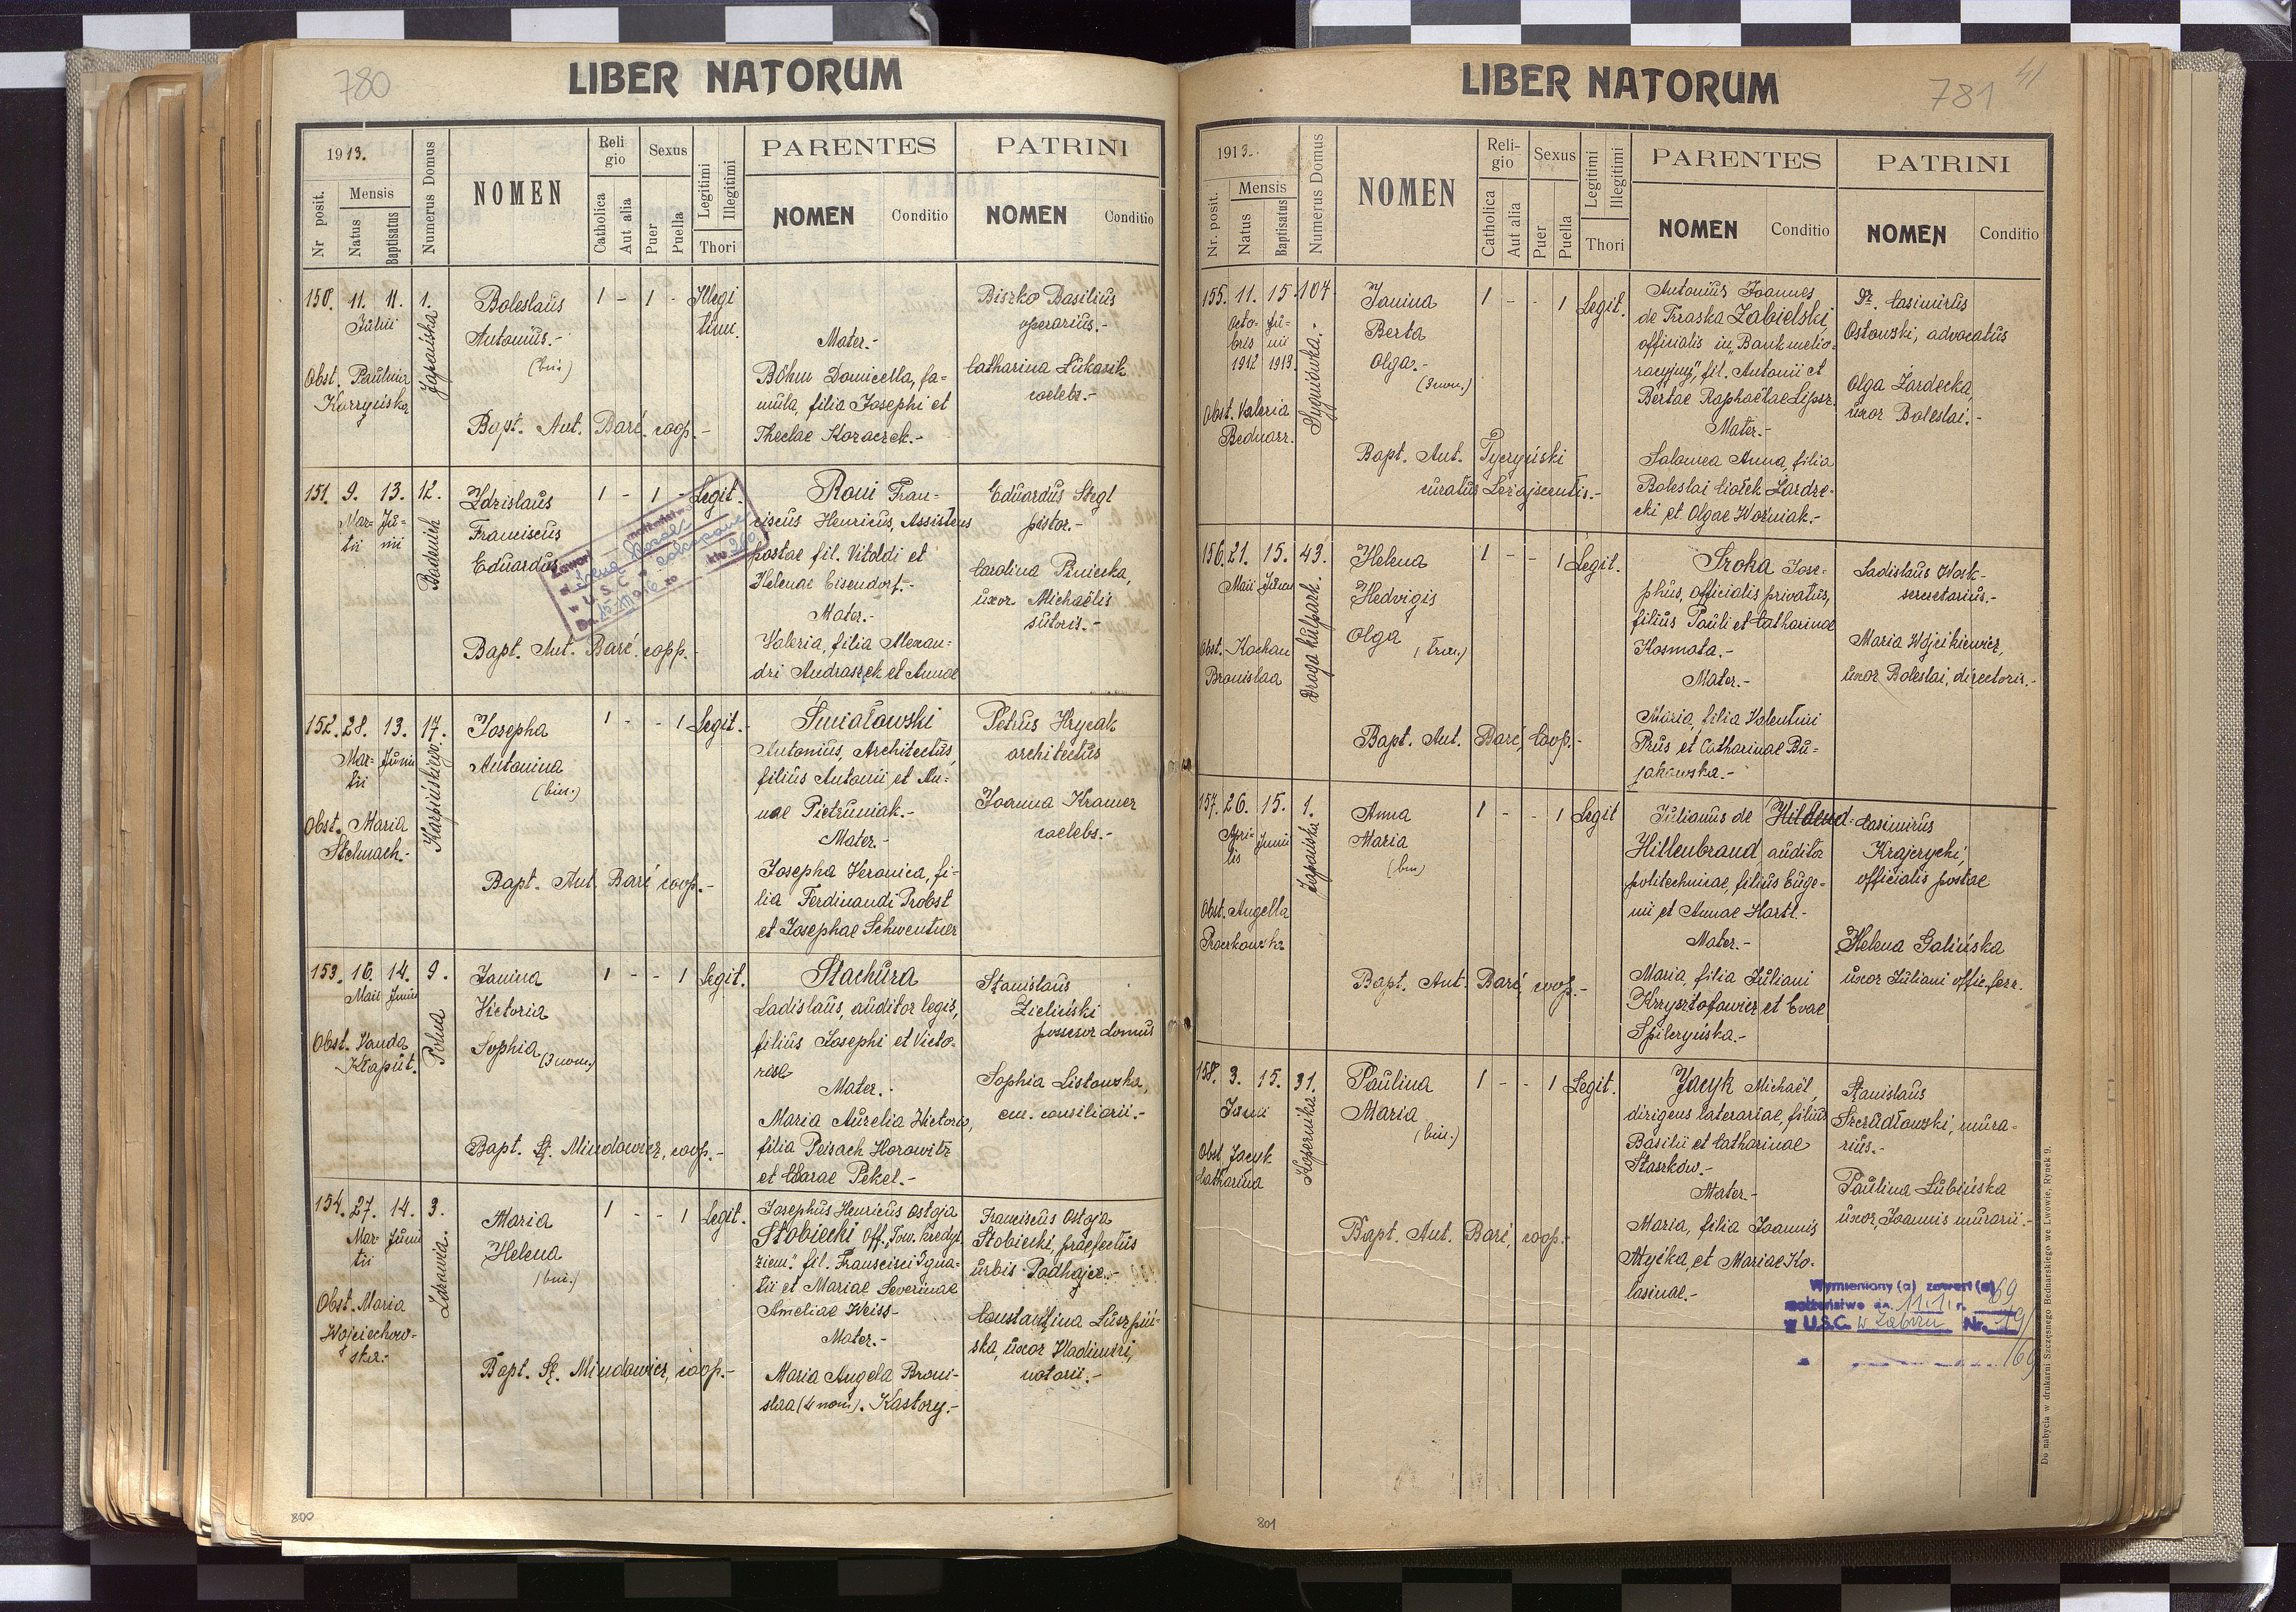 780
LIBER NATORUM
1913.
Nr posit.
Mensis
Natus
Baptisatus
Numerus Domus
NOMEN
Religio
Catholica
Aut alia
Sexus
Puer
Puella
Legitimi
Illegitimi
Thori
PARENTES
NOMEN
Conditio
PATRINI
NOMEN
Conditio
150. 11. 11. 1.
Junii
Japońska
Obst. Paulina
Boleslaus
Antonius.-
(bin)
Bapt. Ant. Barć. coop.-
1 - 1 -
Illegi
tim.
Mater.-
Böhm Domicella, fa-
mula, filia Josephi et
Theclae Kozaczek.-
Biszko Basilius
operarius.-
Catharina Łukasik
coelebs.-
151. 9. 13. 12.
Mar- Ju-
tii nii
Badenich
Zdzislaus
Franciscus
Eduardus
Bapt. Ant. Barć. copp.-
1 - 1 - Legit.
Roni Fran-
ciscus Henricus, Assistens
postae fil. Vitoldi et
Helenae Eisendorf.-
Mater.-
Valeria, filia Alexan-
dri Andraszek et Annae
Eduardus Stegl
pistor.-
Carolina Piniecka,
uxor Michaëlis
sutoris.-
152. 28. 13. 17.
Mar- Junii
tii
Karpińskiego
Obst. Maria
Stelmach.-
Josepha
Antonina
(bin.)
Bapt. Ant. Barć coop.-
1 - - 1 Legit.-
Smiałowski
Antonius, Architectus,
filius Antonii et An-
nae Pietruniak.-
Mater.-
Josepha Veronica, fi-
lia Ferdinandi Probst
et Josephae Schwentner
Petrus Hrycak
architectus
Joanna Kramer
coelebs.-
153. 16. 14. 9.
Maii Junii
Polna
Obst. Vanda
Kłaput.
Janina
Victoria
Sophia (3 nom.)
Bapt. St. Mindowicz, coop.-
1 - - 1 Legit.
Stachura
Ladislaus, auditor legis,
filius Josephi et Victo-
riae
Mater.:
Maria Aurelia Victoria,
filia Peisach Horowitz
et Clarae Pekel.-
Stanislaus
Zieliński
possesor domus
Sophia Listowska,
em. consiliarii.-
154. 27. 14. 3.
Mar- Junii
tii
Zdrowia.
Obst. Maria
Wojciechow-
ska.-
Maria
Helena
(bin.)
Bapt. St. Mindowicz, coop.-
1 - - 1 Legit.
Josephus Henricus Ostoja
Stobiecki Off. "Tow. kredyt.
ziem." fil. Francisci Igna-
tii et Mariae Severinae
Ameliae Weiss-
Mater.-
Maria Angela Broni-
slaa (4 nom). Kastory.-
Franciscus Ostoja
Stobiecki, praefectus
urbis Podhajce.-
Constantina Luszpiń-
ska, uxor Vladimiri,
notarii.-
800
781
41
LIBER NATORUM
1913.
Nr. posit.
Mensis
Natus
Baptisatus
Numerus Domus
NOMEN
Religio
Catholica
Aut alia
Sexus
Puer
Puella
Legitimi
Illegitimi
Thori
PARENTES
NOMEN
Conditio
PATRINI
NOMEN
Conditio
155. 11. 15. 104.
Octo- Ju-
bris nii
1912 1913
Sygniówka.-
Obst. Valeria
Bednarz.
Janina
Berta
Olga.-
(3 nom.)
Bapt. Ant. Tyczyński
curatus Leżajscentis.-
1 - - 1 Legit.
Antonius Joannes
de Trzaska Zabielski,
officialis in "Bank melio-
racyjny", fil. Antonii et
Bertae Raphaëlae Lipsz.
Mater.-
Salomea Anna, filia
Boleslai Ciołek Zardze-
cki et Olgae Woźniak.-
Dr. Casimirus
Ostowski, advocatus
Olga Żardecka,
uxor Boleslai.-
156. 21. 15. 43.
Maii Junii
Droga kulpark.
Obst. Kochan
Bronislaa
Helena
Hedvigis
Olga (trin.)
Bapt. Ant. Barć, Coop.-
1 - - 1 Legit.
Sroka Jose-
phus, officialis privatus,
filius Pauli et Catharinae
Kosmata.-
Mater.-
Maria, filia Valentini
Prus et Catharinae Bu-
jakowska.-
Ladislaus Wosk-
secretarius.-
Maria Wojcikiewicz,
uxor Boleslai, directoris.-
157. 26. 15. 1.
Apri- Junii
lis
Japońska
Obst. Angella
Anna
Maria
(bin)
Bapt. Ant. Barć, coop.-
1 - - 1 Legit
Julianus de
Hillenbrand auditor
politechnicae, filius Euge-
nii et Annae Hartl.-
Mater.-
Maria, filia Juliani
Krzysztofowicz et Evae
Spilczyńska.-
Casimirus
Krajczycki,
officialis postae
Helena Galińska
uxor Juliani offic. ferr.
158. 3. 15. 31.
Junii
Kopernika
Obst. Jacyk
Catharina
Paulina
Maria
(bin.)
Bapt. Ant. Barć, coop.-
1 - - 1 Legit.
Jacyk Michaël,
dirigens laterariae, filius
Basilii et Catharinae
Staszków.-
Mater.-
Maria, filia Joannis
Mycka, et Mariae Ko-
lasinae.-
Stanislaus
Szczudłowski, mura-
rius.-
Paulina Łubińska
uxor Joannis murarii.-
Wymieniony (a) zawarł (a)
małżeństwo dn. 11.1. r. 69
w U.S.C. w Zabrzu Nr. 19/
/69
Do nabycia w drukarni Szczęsnego Bednarskiego we Lwowie, Rynek 9.
801